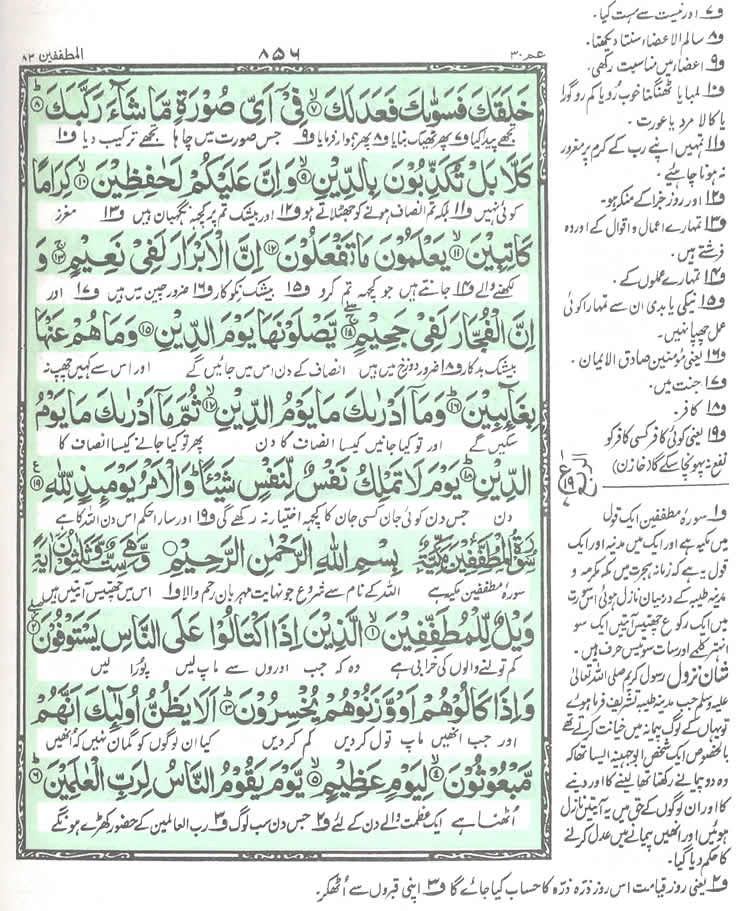 عم ۳۰
۸۵۶
المطففین ۸۳
خَلَقَكَ فَسَوّٰىكَ فَعَدَلَكَ ۙ۷ فِیْۤ اَیِّ صُوْرَةٍ مَّا شَآءَ رَكَّبَكَ ؕ۸
تجھے پیدا کیا و۷ پھر ٹھیک بنایا و۸ پھر ہموار فرمایا و۹ جس صورت میں چاہا تجھے ترکیب دیا و۱۰
كَلَّا بَلْ تُكَذِّبُوْنَ بِالدِّیْنِ ۙ۹ وَ اِنَّ عَلَیْكُمْ لَحٰفِظِیْنَ ۙ۱۰ كِرَامًا
کوئی نہیں و۱۱ بلکہ تم انصاف ہونے کو جھٹلاتے ہو و۱۲ اور بیشک تم پر کچھ نگہبان ہیں و۱۳ معزز
كَاتِبِیْنَ ۙ۱۱ یَعْلَمُوْنَ مَا تَفْعَلُوْنَ ۱۲ اِنَّ الْاَبْرَارَ لَفِیْ نَعِیْمٍ ۚ۱۳ وَ
لکھنے والے و۱۴ جانتے ہیں جو کچھ تم کرو و۱۵ بیشک نکوکار و۱۶ ضرور چین میں ہیں و۱۷ اور
اِنَّ الْفُجَّارَ لَفِیْ جَحِیْمٍ ۚۖ۱۴ یَّصْلَوْنَهَا یَوْمَ الدِّیْنِ ۱۵ وَ مَا هُمْ عَنْهَا
بیشک بدکار و۱۸ ضرور دوزخ میں ہیں انصاف کے دن اس میں جائیں گے اور اس سے کہیں چھپ نہ
بِغَآىٕبِیْنَ ؕ۱۶ وَ مَاۤ اَدْرٰىكَ مَا یَوْمُ الدِّیْنِ ۙ۱۷ ثُمَّ مَاۤ اَدْرٰىكَ مَا یَوْمُ
سکیں گے اور تو کیا جانیں کیسا انصاف کا دن پھر تو کیا جانے کیسا انصاف کا
الدِّیْنِ ؕ۱۸ یَوْمَ لَا تَمْلِكُ نَفْسٌ لِّنَفْسٍ شَیْــٴًـا ؕ وَ الْاَمْرُ یَوْمَىٕذٍ لِّلّٰهِ ۱۹
دن جس دن کوئی جان کسی جان کا کچھ اختیار نہ رکھے گی و۱۹ اور سارا حکم اس دن اللہ کا ہے
سُوْرَةُ الْمُطَفِّفِيْنَ مَكِّيَّةٌ بِسْمِ اللّٰهِ الرَّحْمٰنِ الرَّحِیْمِ وَهِيَ سِتٌّ وَّثَلٰثُوْنَ اٰيَةً
سورۂ مطففین مکیہ ہے اللہ کے نام سے شروع جو نہایت مہربان رحم والا و۱ اس میں چھتیس آیتیں ہیں
وَیْلٌ لِّلْمُطَفِّفِیْنَ ۙ۱ الَّذِیْنَ اِذَا اكْتَالُوْا عَلَى النَّاسِ یَسْتَوْفُوْنَ ؗۖ۲
کم تولنے والوں کی خرابی ہے وہ کہ جب اوروں سے ماپ لیں پورا لیں
وَ اِذَا كَالُوْهُمْ اَوْ وَّزَنُوْهُمْ یُخْسِرُوْنَ ؕ۳ اَلَا یَظُنُّ اُولٰٓىٕكَ اَنَّهُمْ
اور جب انھیں ماپ تول کردیں کم کردیں کیا ان لوگوں کو گمان نہیں کہ انھیں
مَّبْعُوْثُوْنَ ۙ۴ لِیَوْمٍ عَظِیْمٍ ۙ۵ یَّوْمَ یَقُوْمُ النَّاسُ لِرَبِّ الْعٰلَمِیْنَ ؕ۶
اٹھنا ہے ایک عظمت والے دن کے لئے و۲ جس دن سب لوگ و۳ رب العالمین کے حضور کھڑے ہونگے
و۷ اور نیست سے ہست کیا۔
و۸ سالم الاعضاء سنتا دیکھتا۔
و۹ اعضاء میں مناسبت رکھی۔
و۱۰ لمبا یا ٹھنگنا خوب رو یا کم رو گورا
یا کالا مرد یا عورت۔
و۱۱ تمہیں اپنے رب کے کرم پر مغرور
نہ ہونا چاہئے۔
و۱۲ اور روز جزا کے منکر ہو۔
و۱۳ تمہارے اعمال و اقوال کے اور وہ
فرشتے ہیں۔
و۱۴ تمہارے عملوں کے۔
و۱۵ نیکی یا بدی ان سے تمہارا کوئی
عمل چھپا نہیں۔
و۱۶ یعنی مؤمنین صادق الایمان۔
و۱۷ جنت میں۔
و۱۸ کافر۔
و۱۹ یعنی کوئی کافر کسی کافر کو
نفع نہ پہونچا سکے گا (خازن)
و۱ سورۂ مطففین ایک قول
میں مکیہ ہے اور ایک میں مدنیہ اور ایک
قول یہ ہے کہ زمانۂ ہجرت میں مکہ مکرمہ و
مدینہ طیبہ کے درمیان نازل ہوئی اس سورت
میں ایک رکوع چھتیس آیتیں ایک سو
انہتر کلمے اور سات سو تیس حرف ہیں۔
شان نزول رسول کریم صلی اللہ تعالیٰ
علیہ وسلم جب مدینہ طیبہ تشریف فرما ہوئے
تو یہاں کے لوگ پیمانہ میں خیانت کرتے تھے
بالخصوص ایک شخص ابوجہینہ ایسا تھا کہ
وہ دو پیمانے رکھتا تھا لینے کا اور دینے
کا اور ان لوگوں کے حق میں یہ آیتیں نازل
ہوئیں اور انھیں پیمانے میں عدل کرنے
کا حکم دیا گیا۔
و۲ یعنی روز قیامت اس روز ذرّہ ذرّہ کا حساب کیا جائے گا و۳ اپنی قبروں سے اُٹھ کر۔